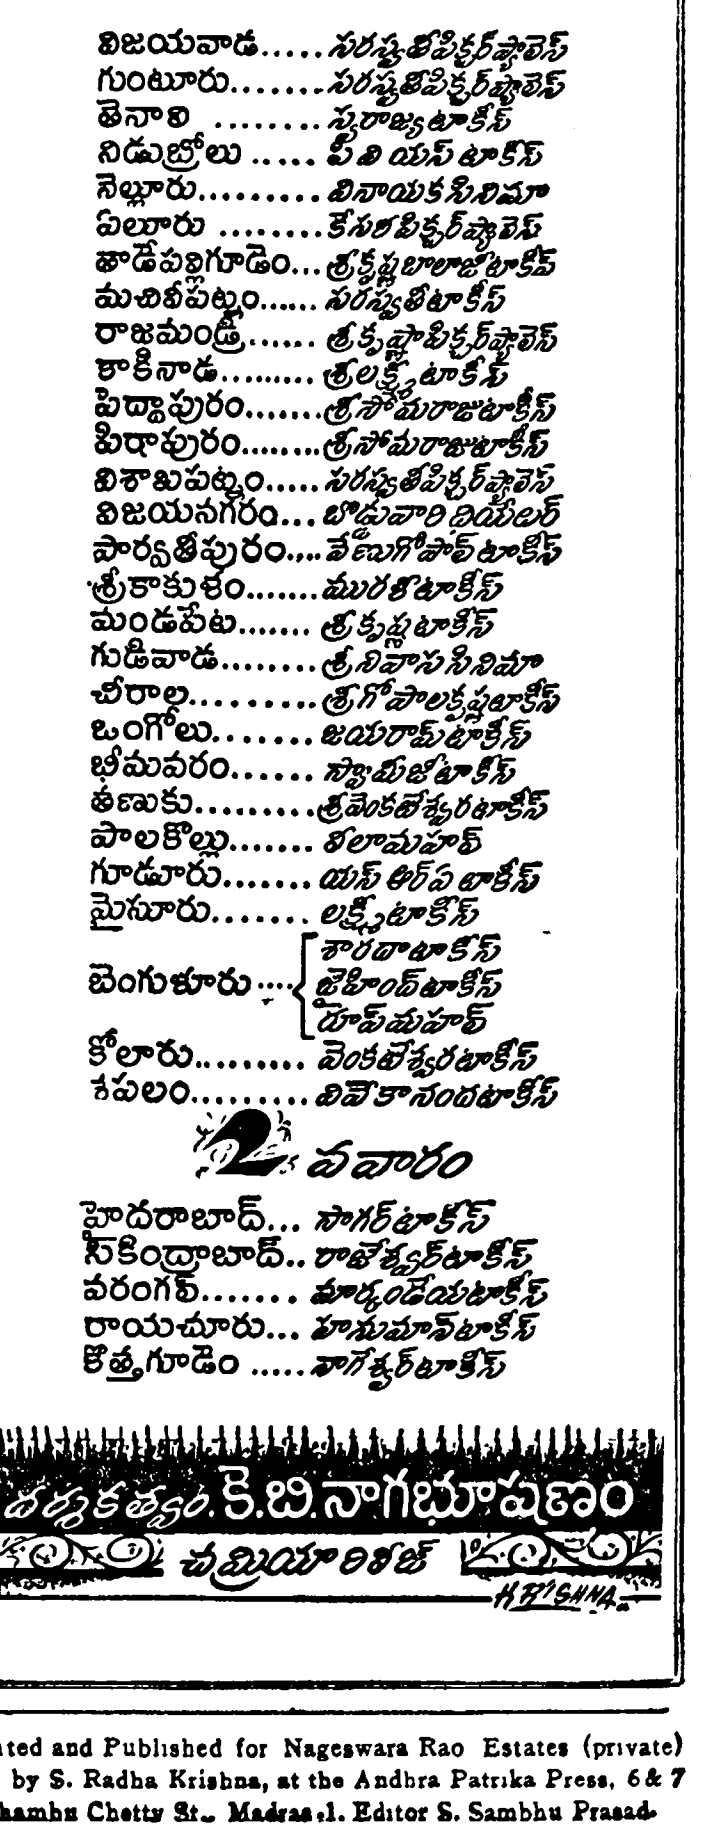 విజయవాడ.....సరస్వతీపిక్చర్ప్యాలెస్
గుంటూరు.......సరస్వతీపిక్చర్ప్యాలెస్
తెనాలి ........స్వరాజ్యటాకీస్
నిడుబ్రోలు ..... పి వి యస్ టాకీస్
నెల్లూరు.........వినాయకసినిమా
ఏలూరు ........కేసరిపిక్చర్ప్యాలెస్
తాడేపల్లిగూడెం...శ్రీకృష్ణబాలాజీటాకీస్
మచిలీపట్నం......సరస్వతీటాకీస్
రాజమండ్రీ......శ్రీకృష్ణాపిక్చర్ప్యాలెస్
కాకినాడ.........శ్రీలక్ష్మీటాకీస్
పెద్దాపురం.......శ్రీసోమరాజుటాకీస్
పిఠాపురం........శ్రీసోమరాజుటాకీస్
విశాఖపట్నం.....సరస్వతీపిక్చర్ప్యాలెస్
విజయనగరం...బొడ్డువారి థియేటర్
పార్వతీపురం.....వేణుగోపాల్ టాకీస్
శ్రీకాకుళం.......మురళీటాకీస్
మండపేట.......శ్రీకృష్ణటాకీస్
గుడివాడ........శ్రీనివాససినిమా
చీరాల..........శ్రీగోపాలకృష్ణటాకీస్
ఒంగోలు.......జయరామ్ టాకీస్
భీమవరం......స్వామీజీటాకీస్
తణుకు.........శ్రీవెంకటేశ్వరటాకీస్
పాలకొల్లు.......లీలామహల్
గూడూరు.......యస్ ఆర్ ఏ టాకీస్
మైసూరు.......లక్ష్మీటాకీస్
శారదాటాకీస్
బెంగుళూరు....జైహింద్ టాకీస్
రూప్ మహల్
కోలారు.........వెంకటేశ్వరటాకీస్
సేపలం.........వివేకానందటాకీస్
2 వవారం
హైదరాబాద్...సాగర్ టాకీస్
సికింద్రాబాద్..రాజేశ్వర్ టాకీస్
వరంగల్.......మార్కండేయటాకీస్
రాయచూరు...హనుమాన్ టాకీస్
కొత్తగూడెం .....నాగేశ్వర్ టాకీస్
దర్శకత్వం. కె.బి.నాగభూషణం
చమ్రియా రిలీజ్
KRISHNA.
ted and Published for Nageswara Rao Estates (private)
by S. Radha Krishna, at the Andhra Patrika Press, 6 & 7
hambu Chetty St., Madras.1. Editor S. Sambhu Prasad.